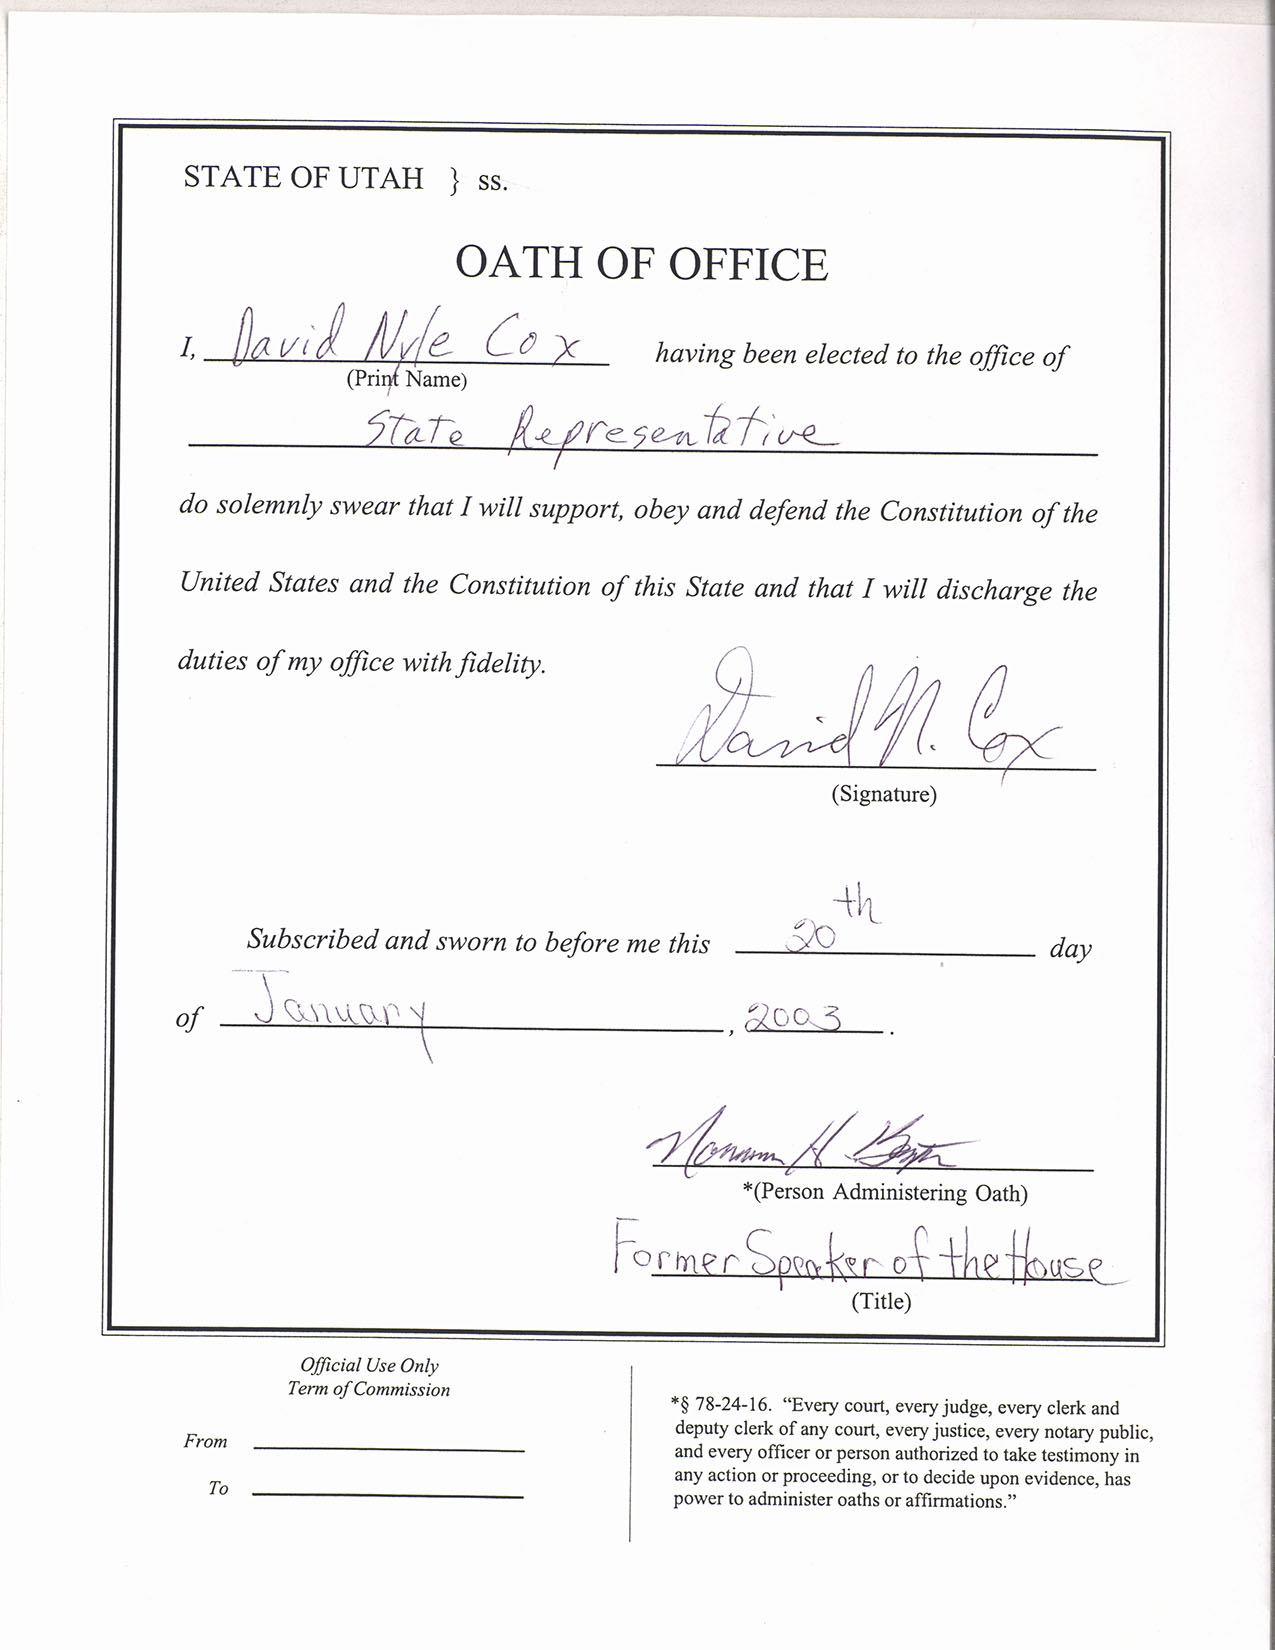 STATE OF UTAH } ss.
OATH OF OFFICE
I, David Nyle Cox having been elected to the office of
(Print Name)
State Representative
do solemnly swear that I will support, obey and defend the Constitution of the
United States and the Constitution of this State and that I will discharge the
duties of my office with fidelity.
David N. Cox
(Signature)
Subscribed and sworn to before me this 20th day
of January, 2003.
H.
*(Person Administering Oath)
Former Speaker of the House
(Title)
Official Use Only
Term of Commission
From
To
*§ 78-24-16. “Every court, every judge, every clerk and
deputy clerk of any court, every justice, every notary public,
and every officer or person authorized to take testimony in
any action or proceeding, or to decide upon evidence, has
power to administer oaths or affirmations.”